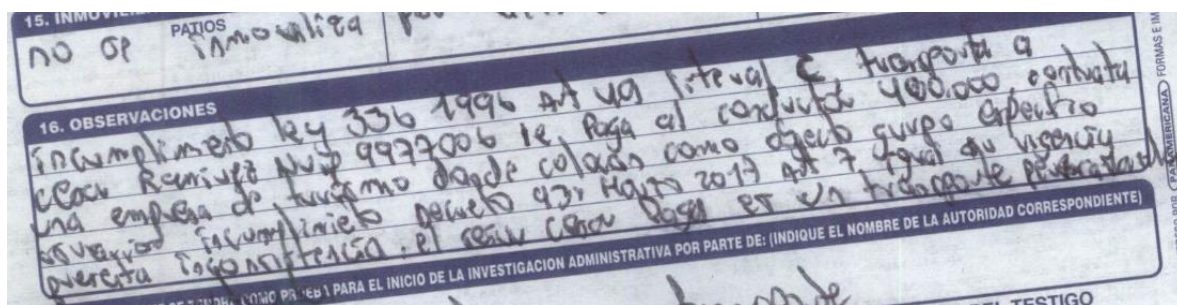 15. INMOVILI
PATIOS
no se inmoviliza por
16. OBSERVACIONES
incumplimiento ley 336 1996 Art 49 literal C transporta a
cesar Ramirez Nuip 9977006 le paga al conductor 400.000, contrata
una empresa de turismo donde colocan como objeto grupo especifico
usuarios incumplimieto decreto 431 Marzo 2017 Art 7 igual su vigencia
presenta inconsistencia. el señor cesar paga es un transporte
PARA EL INICIO DE LA INVESTIGACION ADMINISTRATIVA POR PARTE DE: (INDIQUE EL NOMBRE DE LA AUTORIDAD CORRESPONDIENTE)
TESTIGO
FORMAS E IM
PANAMERICANA